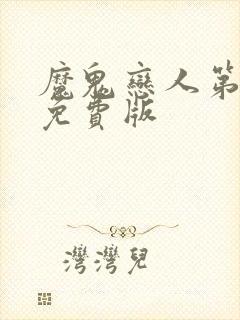 魔鬼戀人第
免費版
灣灣兒